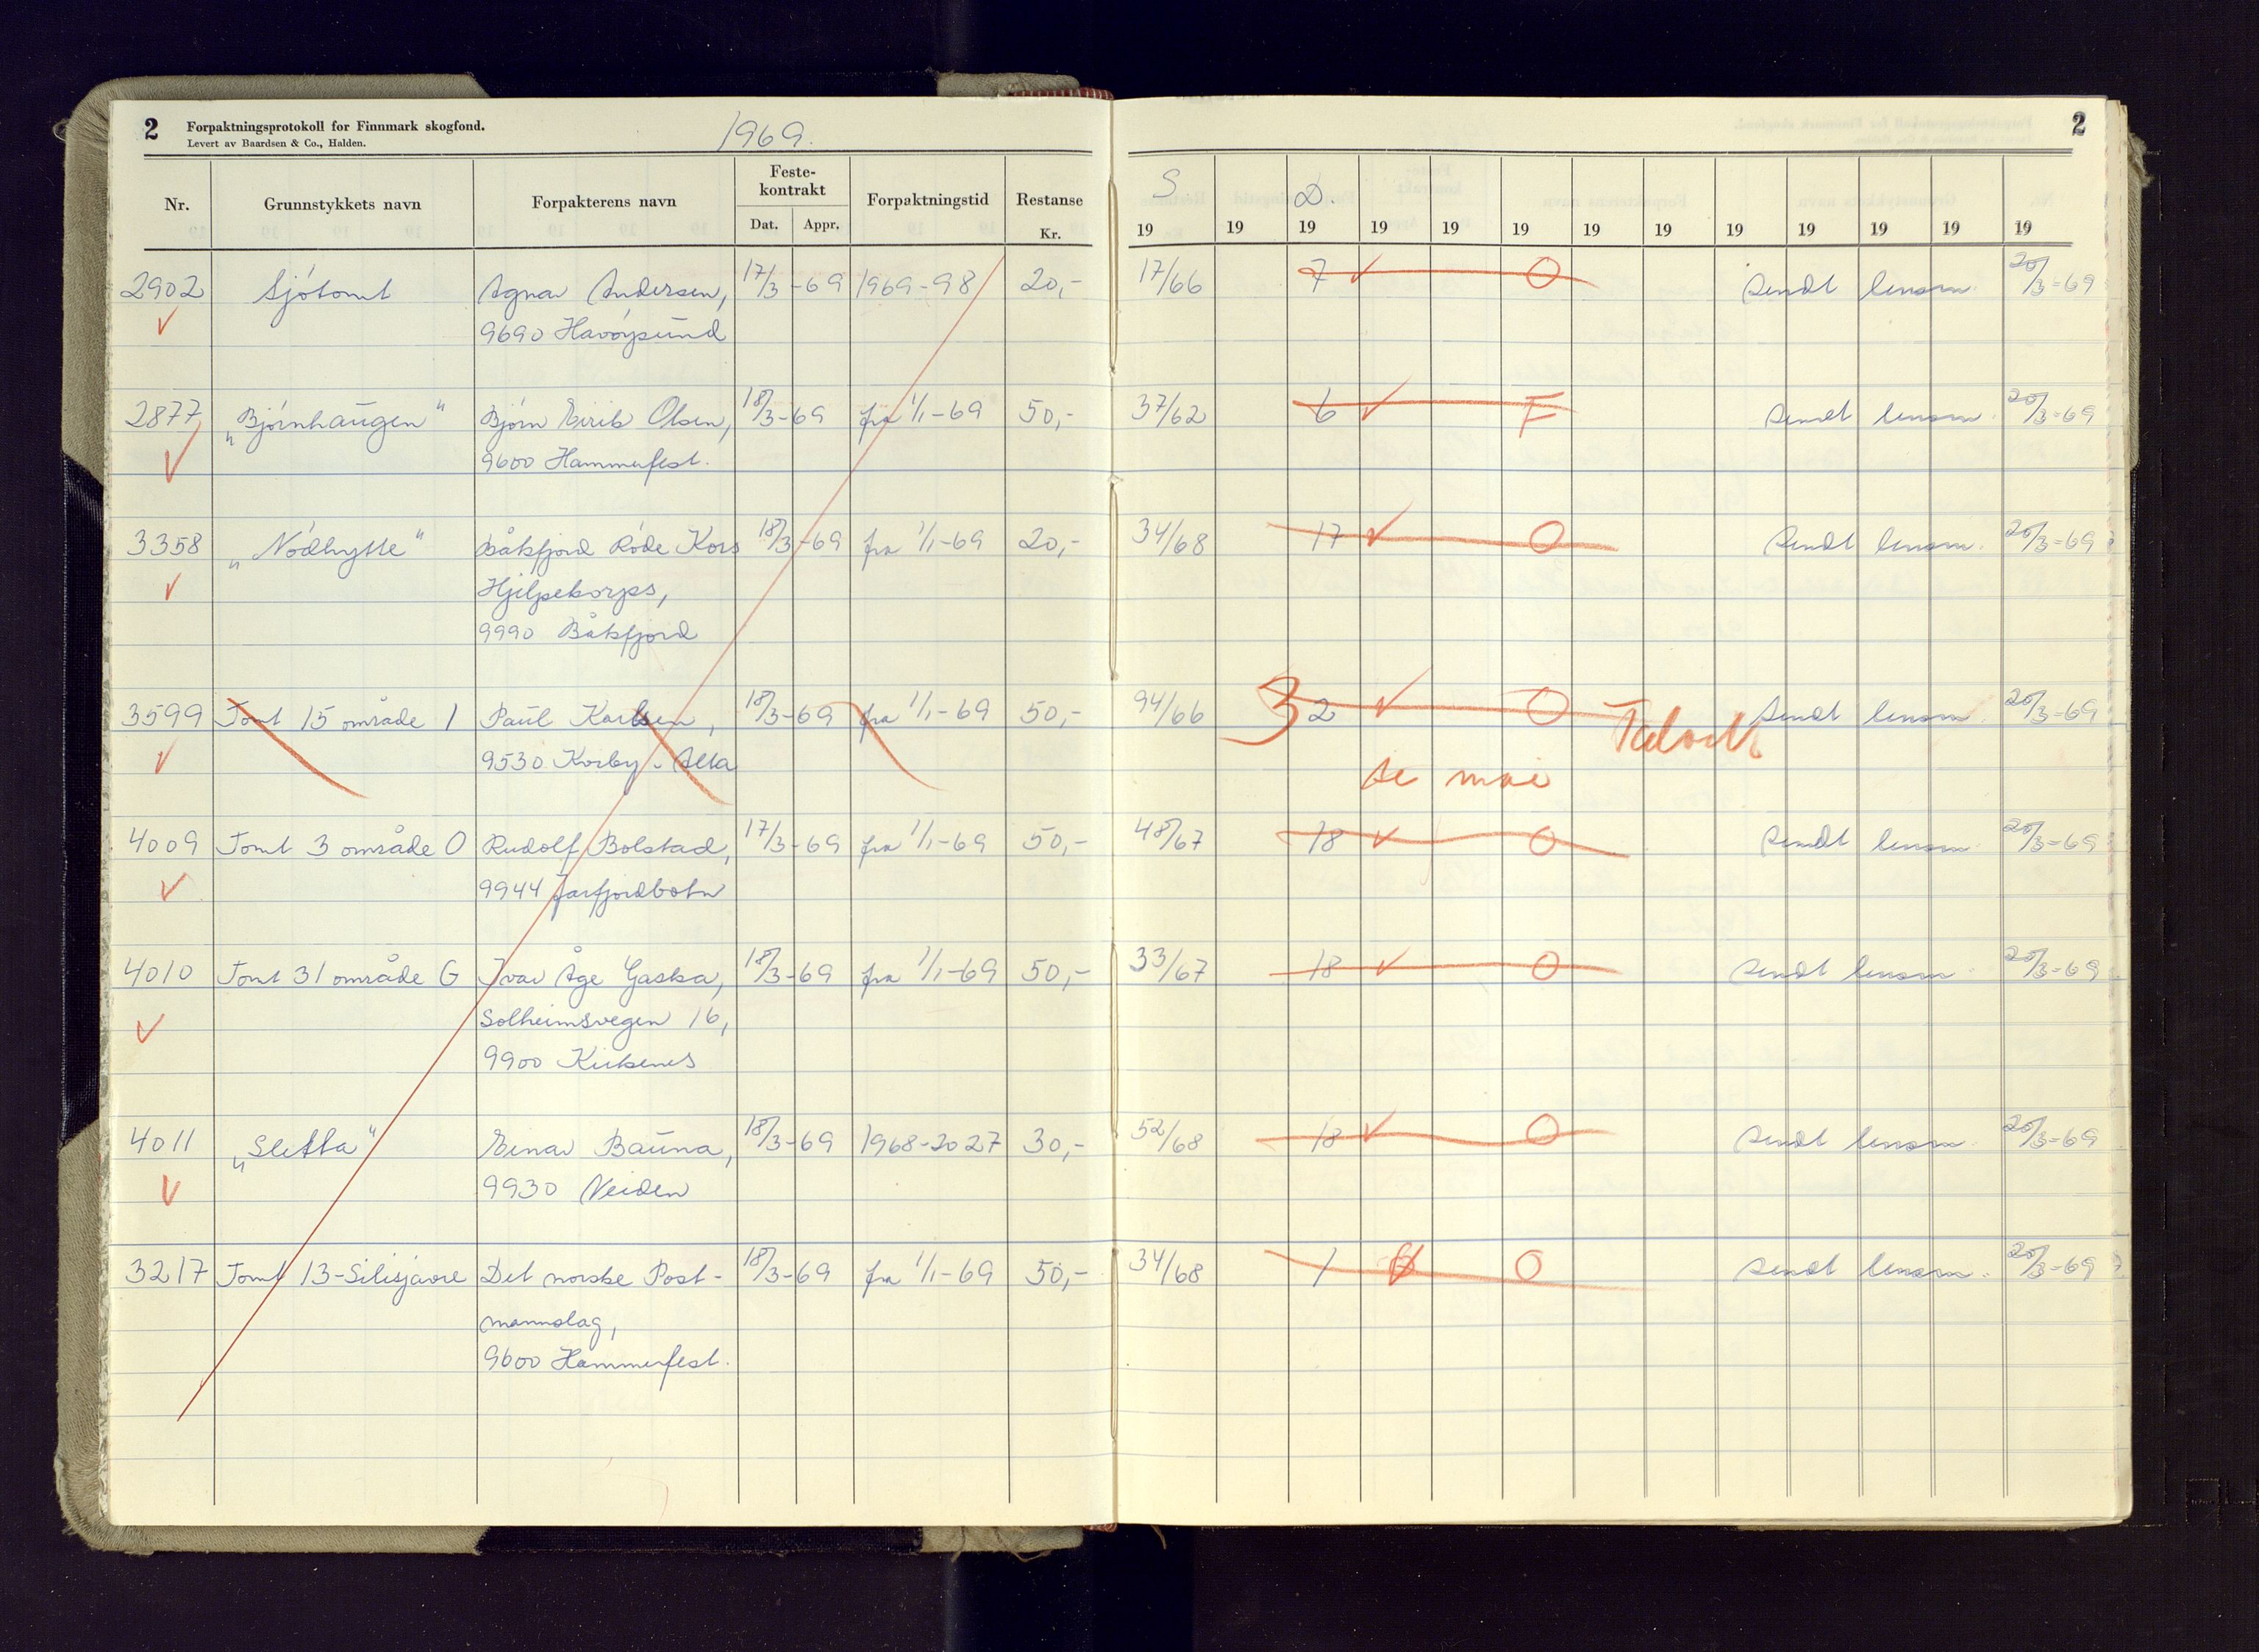 2 Forpaktningsprotokoll for Finnmark skogfond. 1969. 2
Levert av Baardsen & Co., Halden.
Nr. Grunnstykkets navn Forpakterens navn Feste-kontrakt Dat. Appr. Forpaktningstid Restanse Kr. S 19 19 D. 19 19 19 19 19 19 19 19 19 19 19
2902 Sjøtomt Agnar Andersen, 17/3-69 1969-98 20,- 17/66 7 O Sendt lensm. 20/3-69
9690 Havøysund
2877 „Bjørnhaugen" Bjørn Eirik Olsen, 18/3-69 fra 1/1-69 50,- 37/62 6 F Sendt lensm. 20/3-69
9600 Hammerfest.
3358 „Nødhytte" Båtsfjord Røde Kors 18/3-69 fra 1/1-69 20,- 34/68 17 O Sendt lensm. 20/3-69
Hjelpekorps,
9990 Båtsfjord
3599 Tomt 15 område 1 Paul Karlsen, 18/3-69 fra 1/1-69 50,- 94/66 3 2 O Sendt lensm. 20/3-69
9530 Korby - Alta se mai
4009 Tomt 3 område O Rudolf Bolstad, 17/3-69 fra 1/1-69 50,- 48/67 18 O Sendt lensm. 20/3-69
9944 Jarfjordbotn
4010 Tomt 31 område G Ivar Åge Gaska, 18/3-69 fra 1/1-69 50,- 33/67 18 O Sendt lensm. 20/3-69
Solheimsvegen 16,
9900 Kirkenes
4011 „Sletta" Einar Bauna, 18/3-69 1968-2027 30,- 52/68 18 O Sendt lensm. 20/3-69
9930 Neiden
3217 Tomt 13-Silisjavre Det norske Post- 18/3-69 fra 1/1-69 50,- 34/68 1 O Sendt lensm. 20/3-69
mannslag,
9600 Hammerfest.